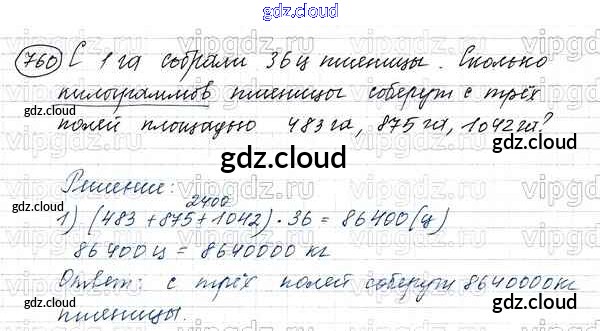 gdz.cloud
760 С 1 га собрали 36 ц пшеницы. Сколько
килограммов пшеницы соберут с трёх
gdz.cloud
полей площадью 483 га, 875 га, 1042 га?
gdz.cloud
gdz.cloud
Решение:
2400
1) (483 + 875 + 1042) · 36 = 86400 (ц)
86400 ц = 8640000 кг
Ответ: с трёх полей соберут 8640000 кг
пшеницы.
gdz.cloud
gdz.cloud
gdz.cloud